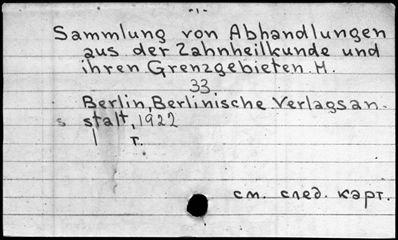 -1-
Sammlung von Abhandlungen
aus der Zahnheilkunde und
ihren Grenzgebieten. H.
33
Berlin, Berlinische Verlagsan-
s stalt, 1922
1 т.
см. след. карт.